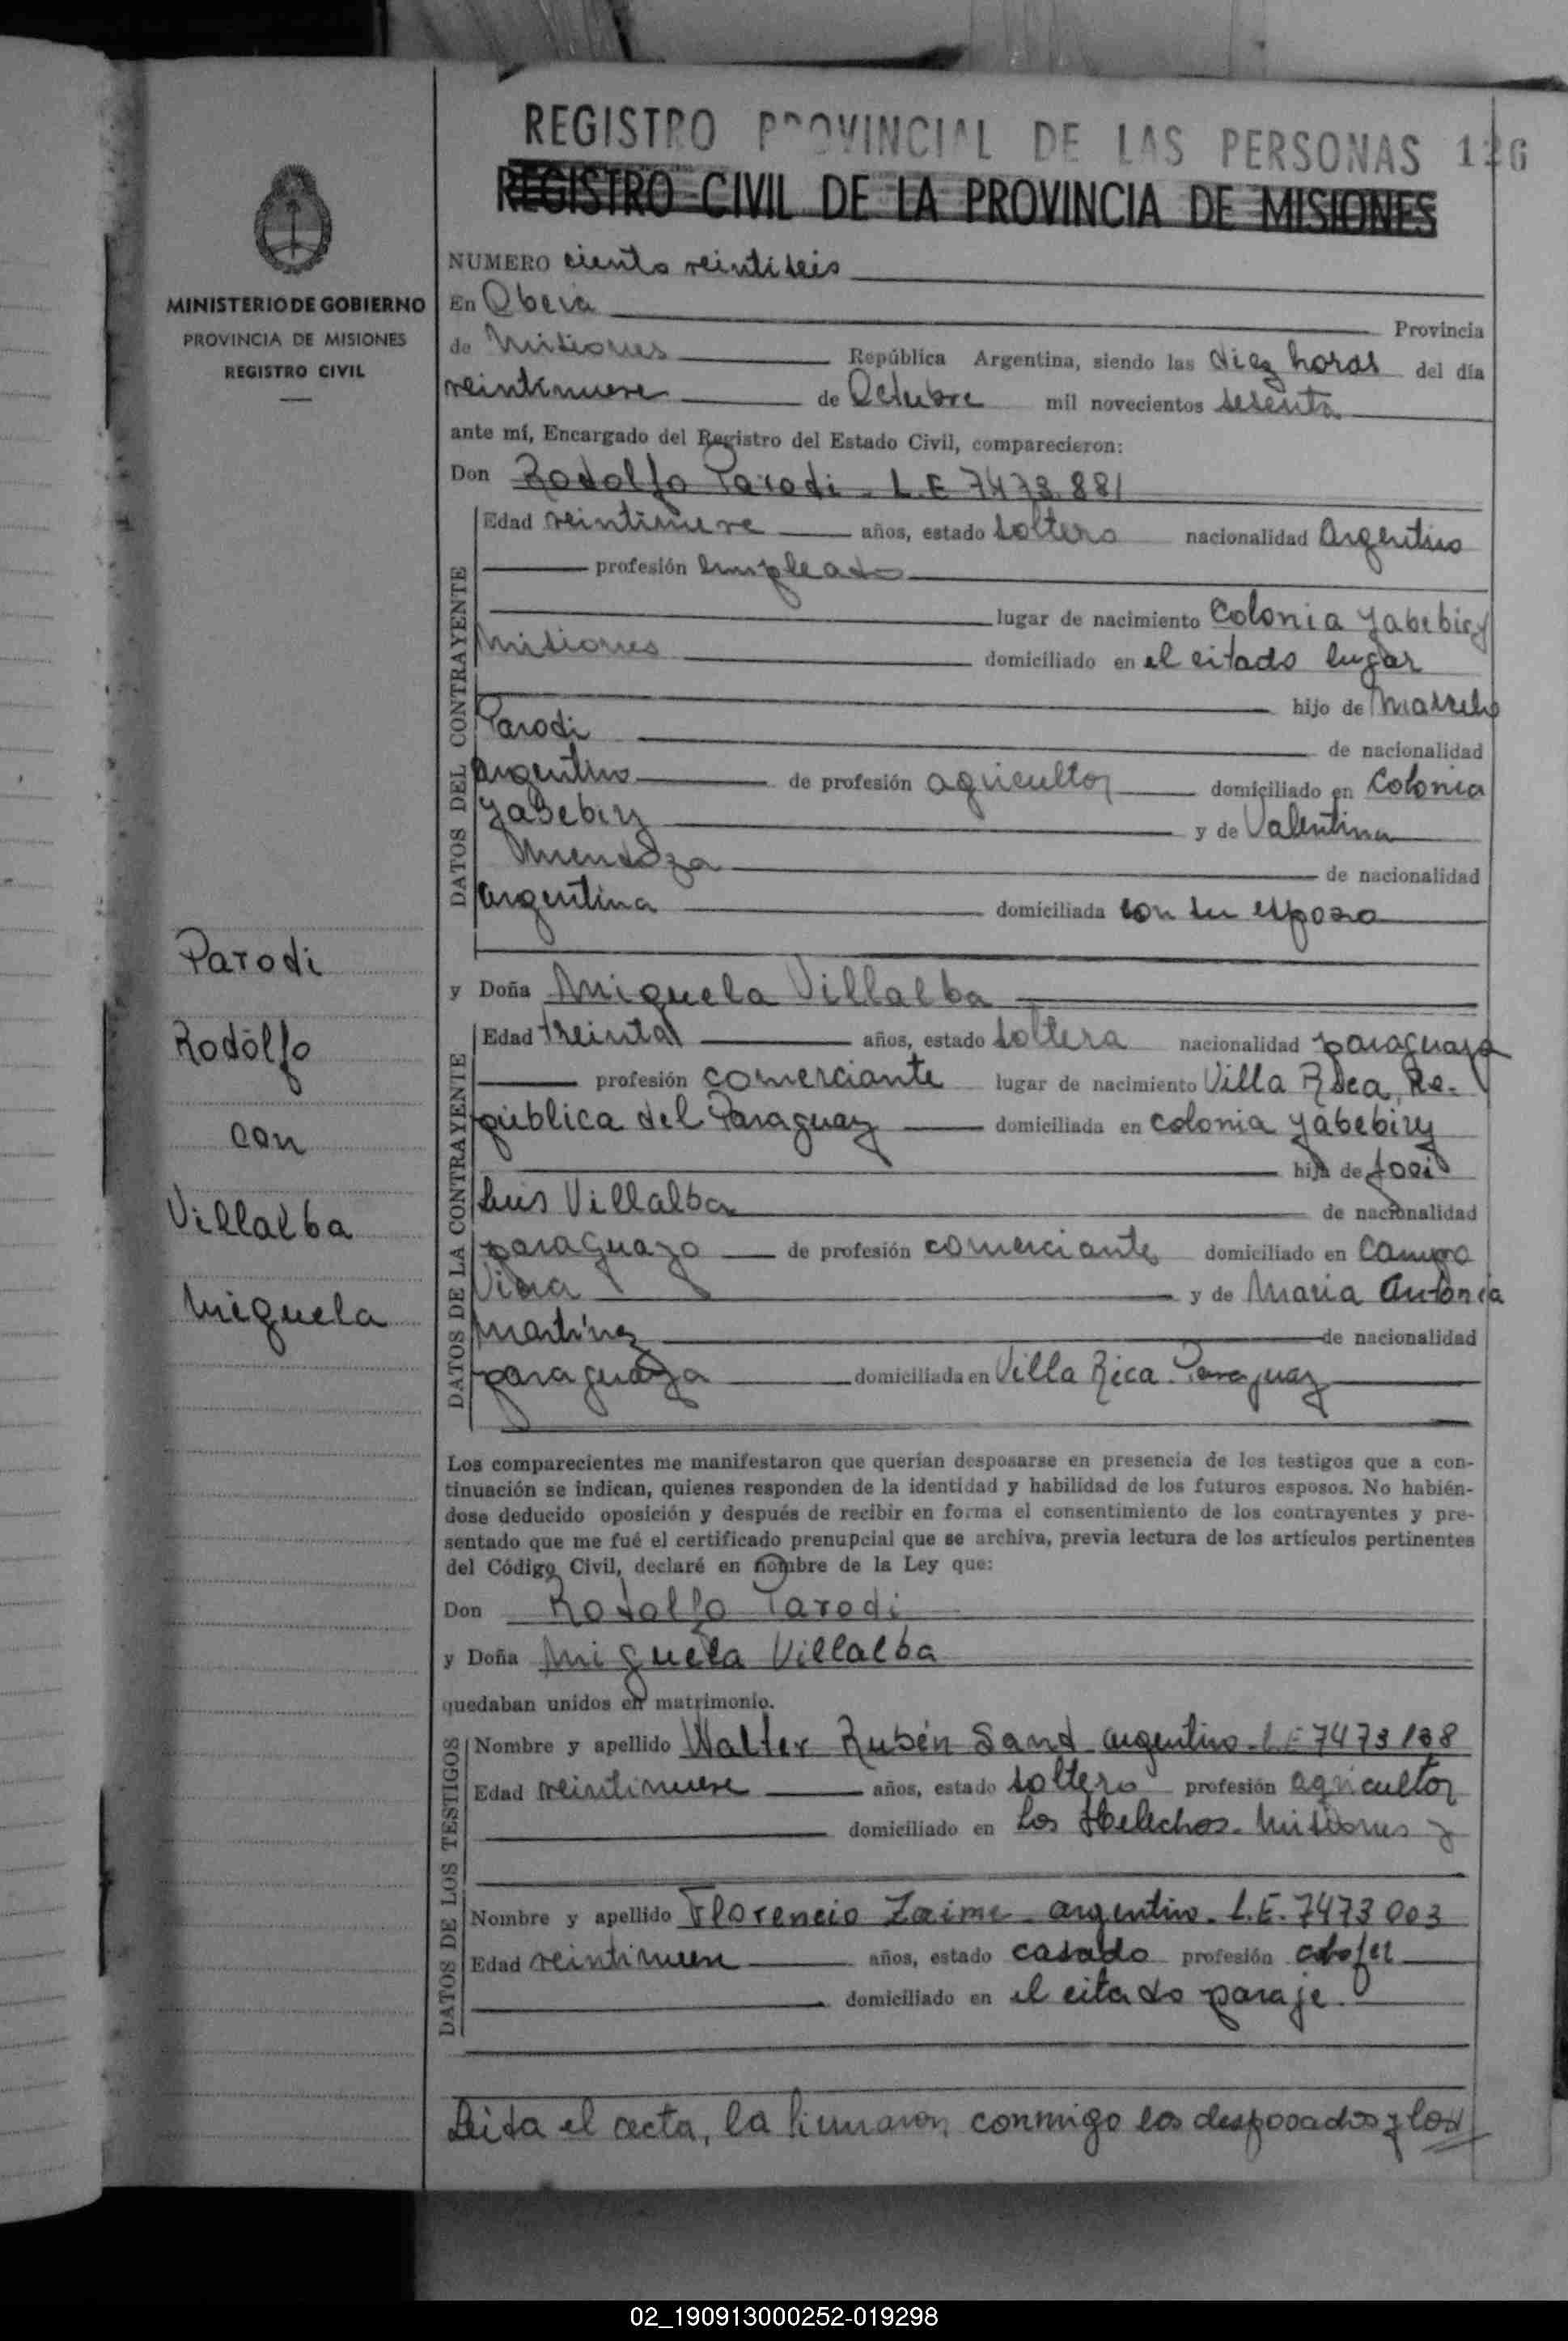 REGISTRO PROVINCIAL DE LAS PERSONAS 126
REGISTRO CIVIL DE LA PROVINCIA DE MISIONES
MINISTERIO DE GOBIERNO
PROVINCIA DE MISIONES
REGISTRO CIVIL
NUMERO ciento veintiseis
En Oberá Provincia
de Misiones República Argentina, siendo las diez horas del día
veintinueve de Octubre mil novecientos sesenta
ante mí, Encargado del Registro del Estado Civil, comparecieron:
Don Rodolfo Parodi - L.E 7473.881
DATOS DEL CONTRAYENTE
Edad veintinueve años, estado soltero nacionalidad Argentino
profesión empleado
lugar de nacimiento Colonia Yabebiry
Misiones domiciliado en el citado lugar
hijo de Marcelo
Parodi de nacionalidad
argentino de profesión agricultor domiciliado en Colonia
Yabebiry y de Valentina
Mendoza de nacionalidad
argentina domiciliada con su esposo
Parodi
Rodolfo
con
Villalba
Miguela
y Doña Miguela Villalba
DATOS DE LA CONTRAYENTE
Edad treinta años, estado soltera nacionalidad paraguaya
profesión comerciante lugar de nacimiento Villa Rica, Re-
pública del Paraguay domiciliada en colonia yabebiry
hija de José
Luis Villalba de nacionalidad
paraguayo de profesión comerciante domiciliado en Campo
Viera y de Maria Antonia
Martínez de nacionalidad
paraguaya domiciliada en Villa Rica - Paraguay
Los comparecientes me manifestaron que querían desposarse en presencia de los testigos que a con-
tinuación se indican, quienes responden de la identidad y habilidad de los futuros esposos. No habién-
dose deducido oposición y después de recibir en forma el consentimiento de los contrayentes y pre-
sentado que me fué el certificado prenupcial que se archiva, previa lectura de los artículos pertinentes
del Código Civil, declaré en nombre de la Ley que:
Don Rodolfo Parodi
y Doña Miguela Villalba
quedaban unidos en matrimonio.
DATOS DE LOS TESTIGOS
Nombre y apellido Walter Rubén Sand - argentino - L.E 7473138
Edad veintinueve años, estado soltero profesión agricultor
domiciliado en Los Helechos - Misiones y
Nombre y apellido Florencio Zaime - argentino - L.E. 7473 003
Edad veintinueve años, estado casado profesión chofer
domiciliado en el citado paraje.
Leida el acta, la firmaron conmigo los desposados y los
02_190913000252-019298